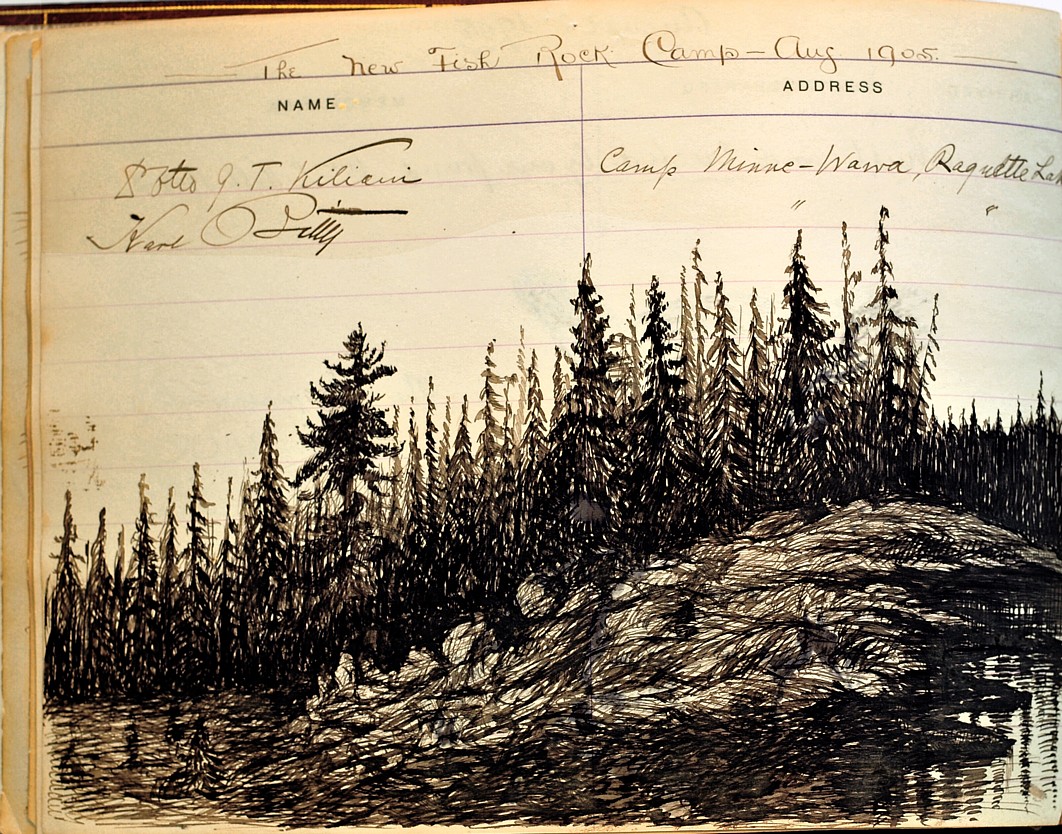 The New Fish Rock Camp – Aug 1905.
NAME ADDRESS
Otto G. T. Kiliani Camp Minne-Wawa, Raquette Lak
Karl O " "